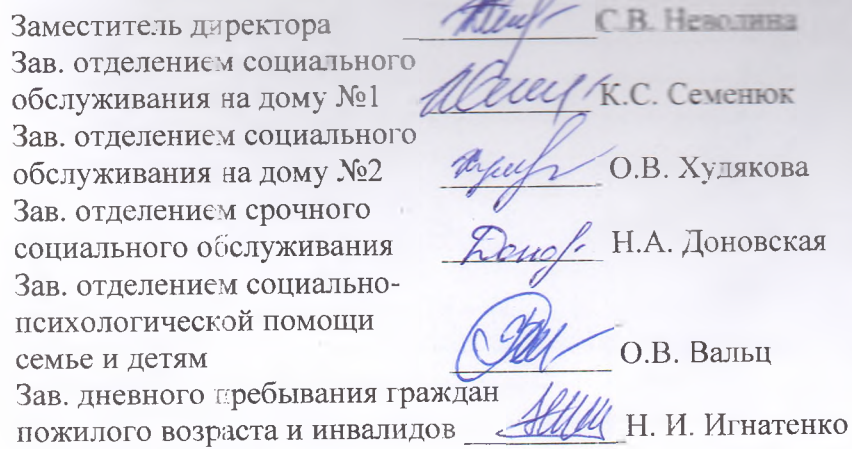 Заместитель директора С.В. Неволина
Зав. отделением социального
обслуживания на дому №1 К.С. Семенюк
Зав. отделением социального
обслуживания на дому №2 О.В. Худякова
Зав. отделением срочного
социального обслуживания Н.А. Доновская
Зав. отделением социально-
психологической помощи
семье и детям О.В. Вальц
Зав. дневного пребывания граждан
пожилого возраста и инвалидов Н. И. Игнатенко